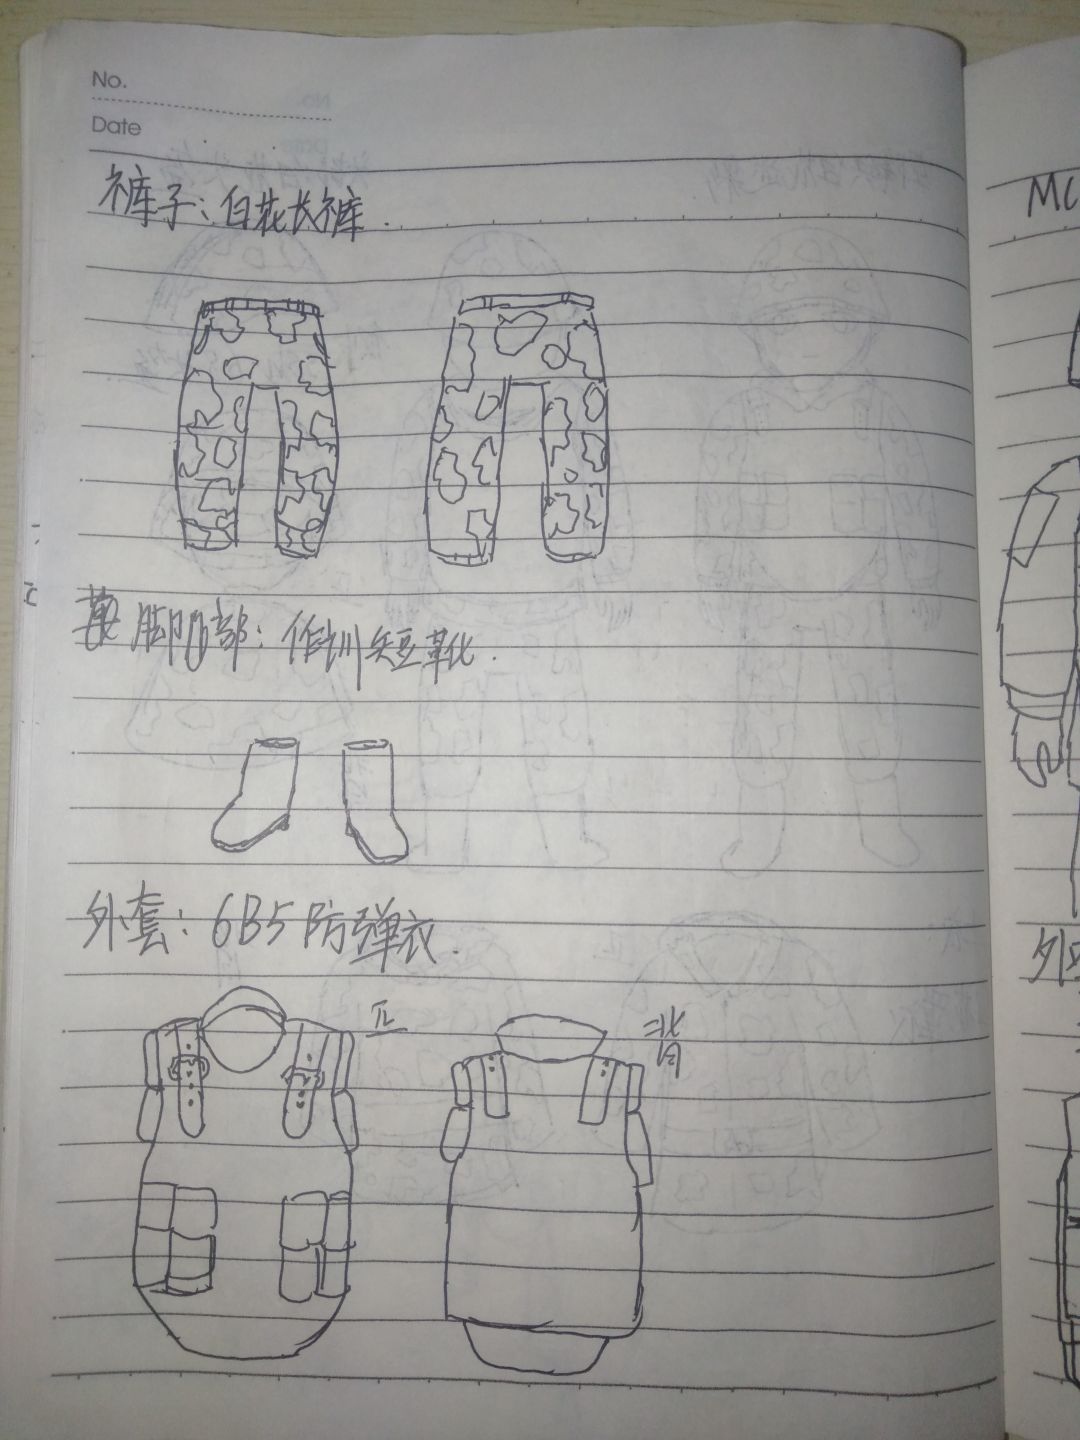 No.
Date
裤子：白花长裤.
脚部：作训短靴.
外套：6B5防弹衣.
正
背
MC
外